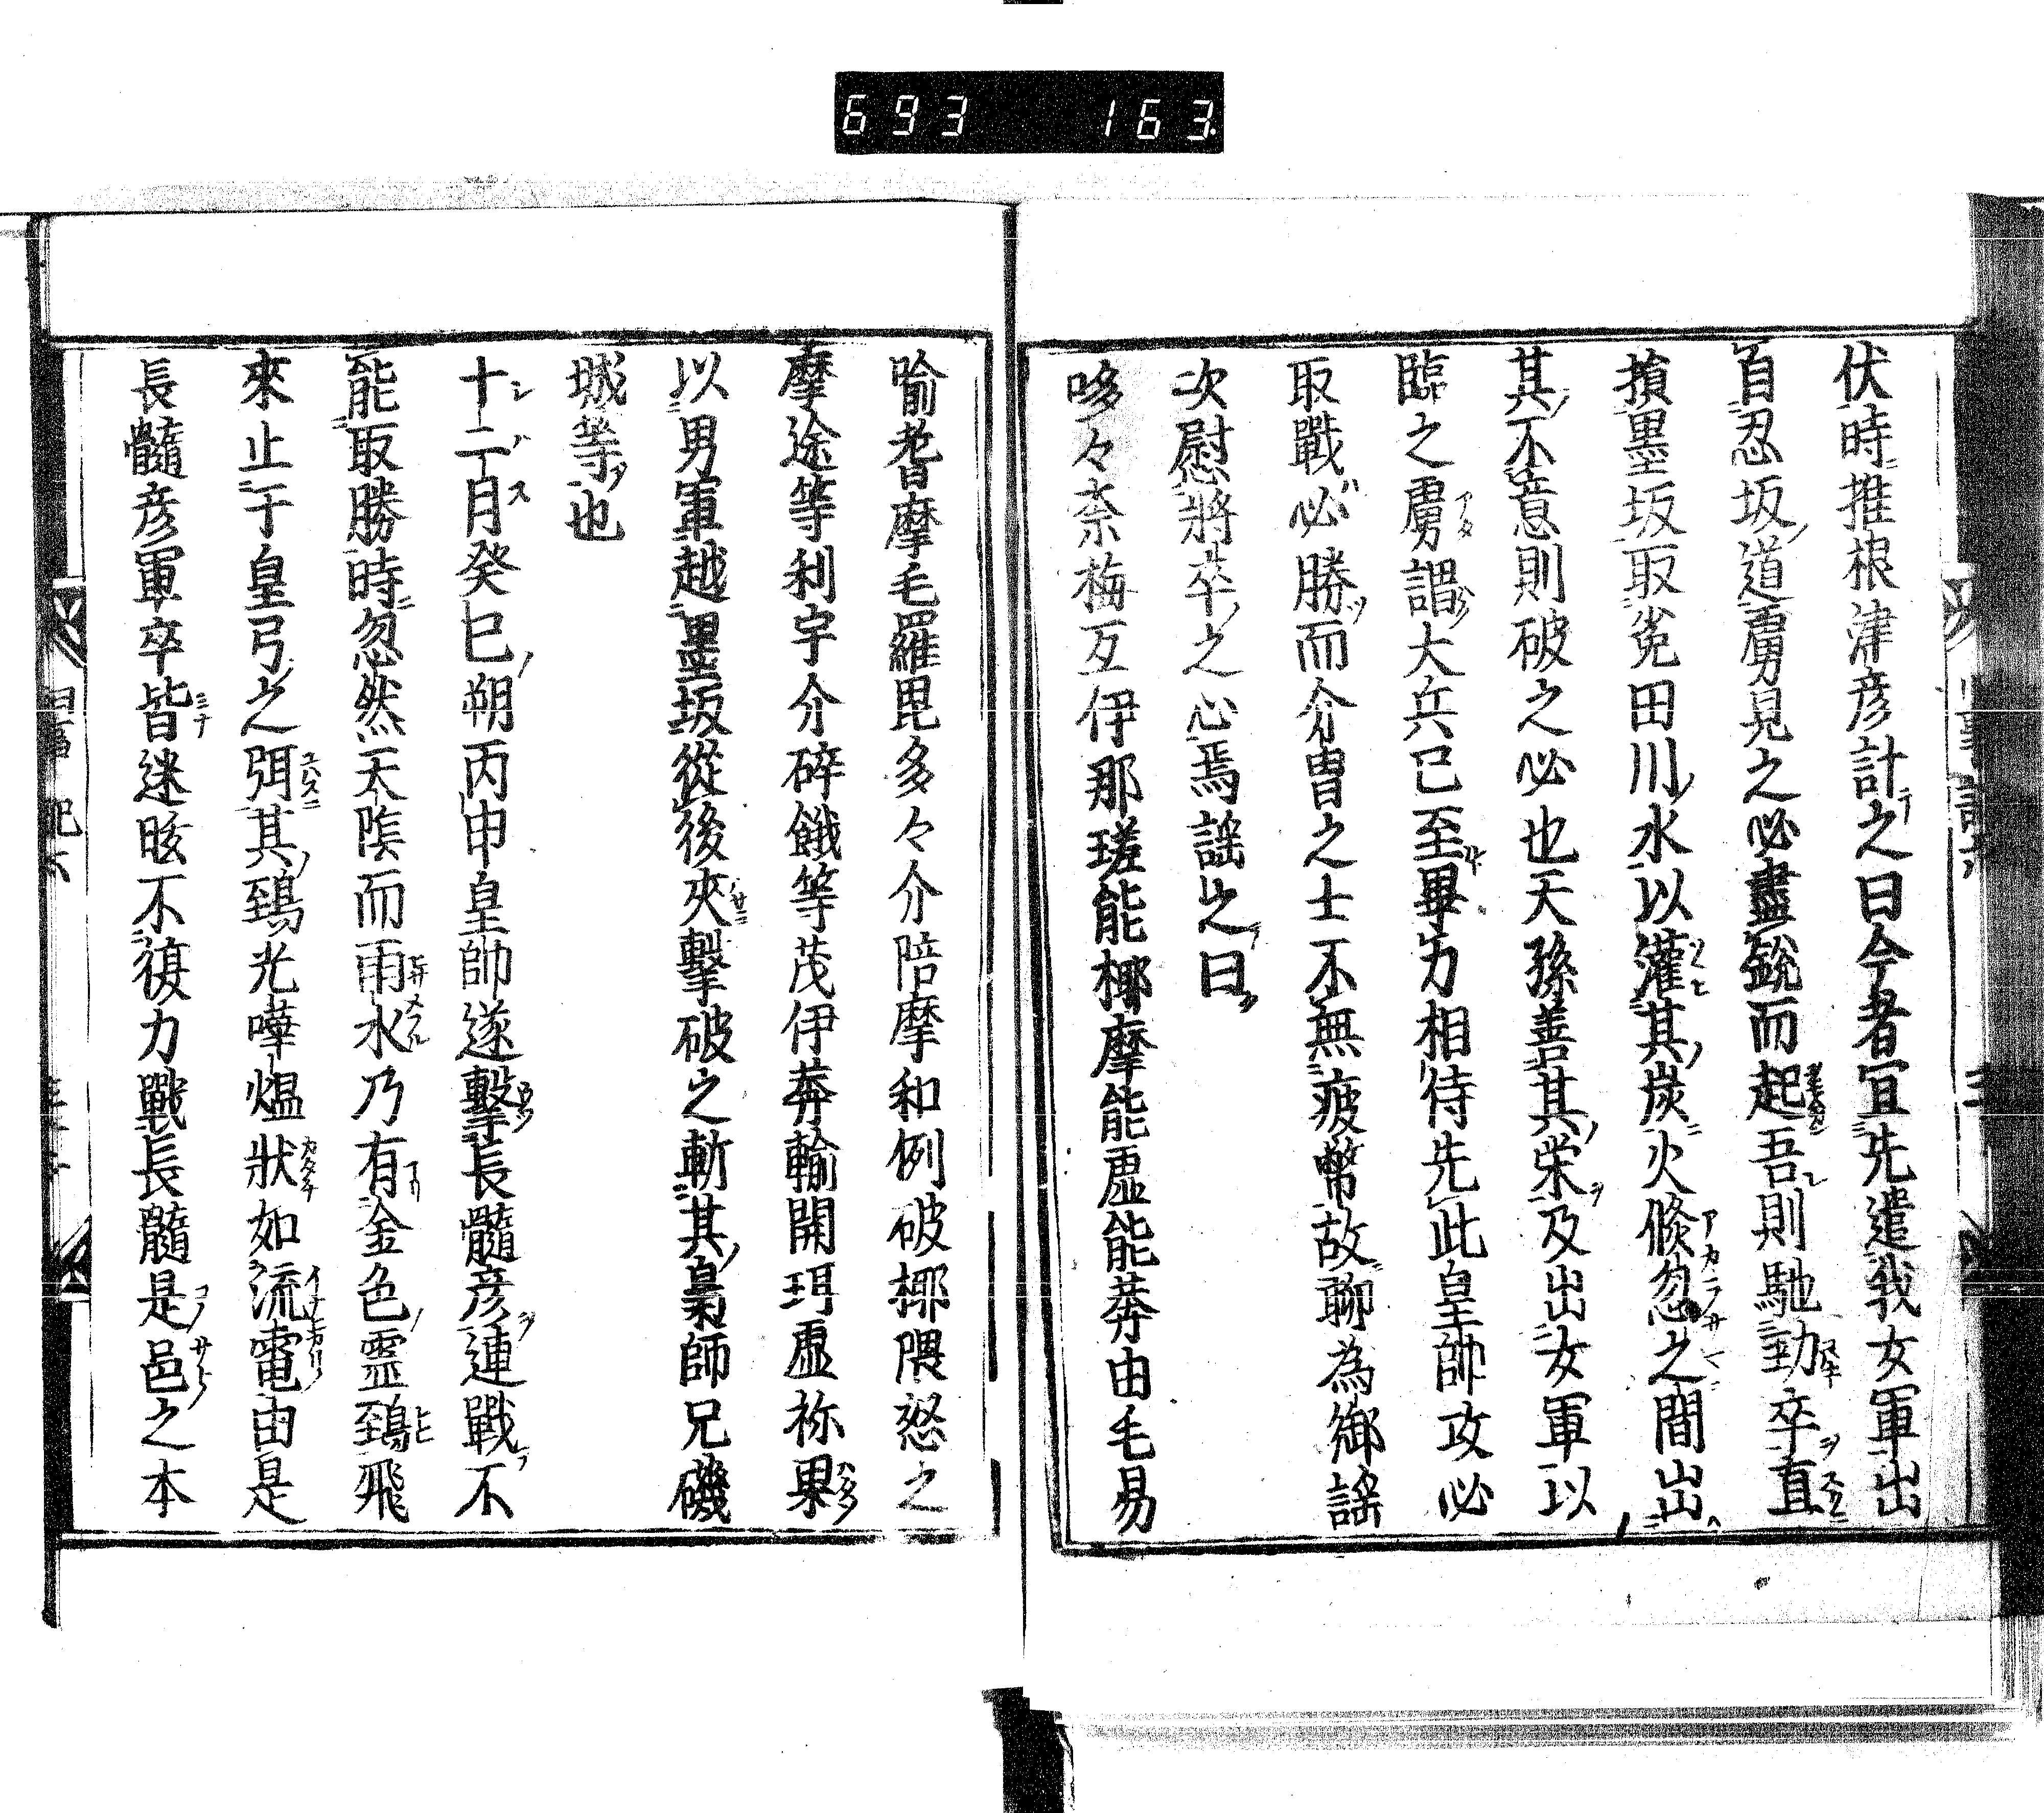 693 163
伏時推根津彦計之曰今者宜先遣我女軍出
自忍坂道虜見之必盡銳而起吾則馳勁卒直
損墨坂取菟田川水以灌其炭火倐忽之間出
其不意則破之必也天孫善其栄及出女軍以
臨之虜謂大兵已至畢力相待先此皇帥攻必
取戰必勝而介曺之士不無疲幣故聊為御謡
次慰將卒之心焉謡之曰
哆々柰梅亙伊那瑳能椰摩能虛能莽由毛易
喻耆摩毛羅毘多々介陪摩和例破椰隈怒之
摩途等利宇介碎餓等茂伊莽輸開珥虛祢果
以男軍越墨坂從後夾擊破之斬其梟師兄磯
城等也
十二月癸巳朔丙申皇帥遂擊長髓彦連戰不
能取勝時忽然天陰而雨水乃有金色霊鵄飛
來止于皇弓之弭其鵄光嘩煴狀如流電由是
長髓彦軍卒皆迷眩不復力戰長髓是邑之本